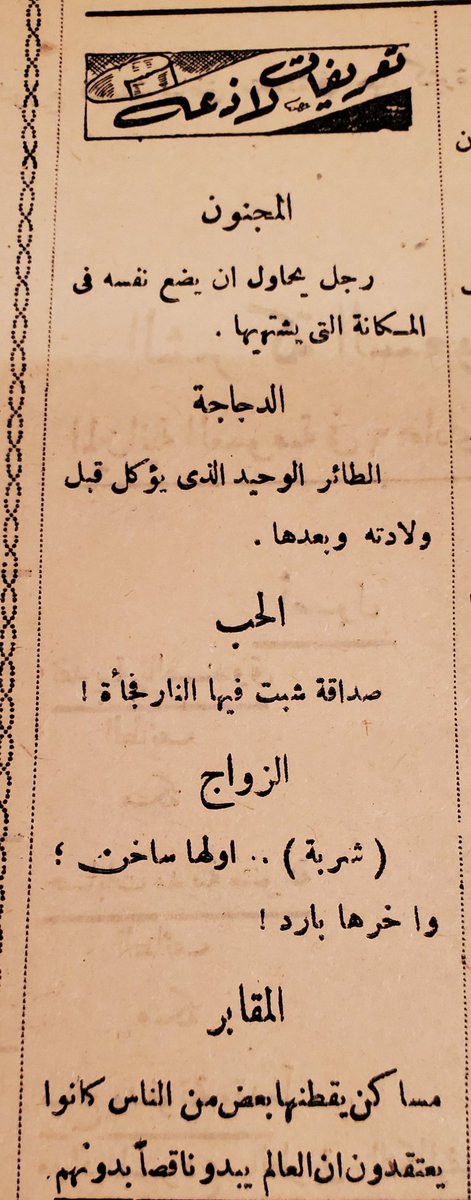 تعريفات لاذعه
المجنون
رجل يحاول ان يضع نفسه فى
المكانة التى يشتهيها .
الدجاجة
الطائر الوحيد الذى يؤكل قبل
ولادته وبعدها .
الحب
صداقة شبت فيها النار فجأة !
الزواج
( شربة ) .. اولها ساخن ؛
واخرها بارد !
المقابر
مساكن يقطنها بعض من الناس كانوا
يعتقدون ان العالم يبدو ناقصاً بدونهم .